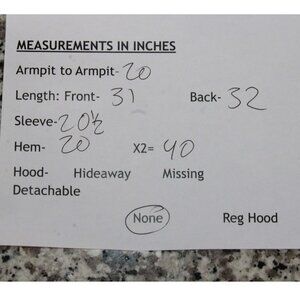 MEASUREMENTS IN INCHES
Armpit to Armpit- 20
Length: Front- 31 Back- 32
Sleeve- 20½
Hem- 20 X2= 40
Hood- Hideaway Missing
Detachable
None Reg Hood